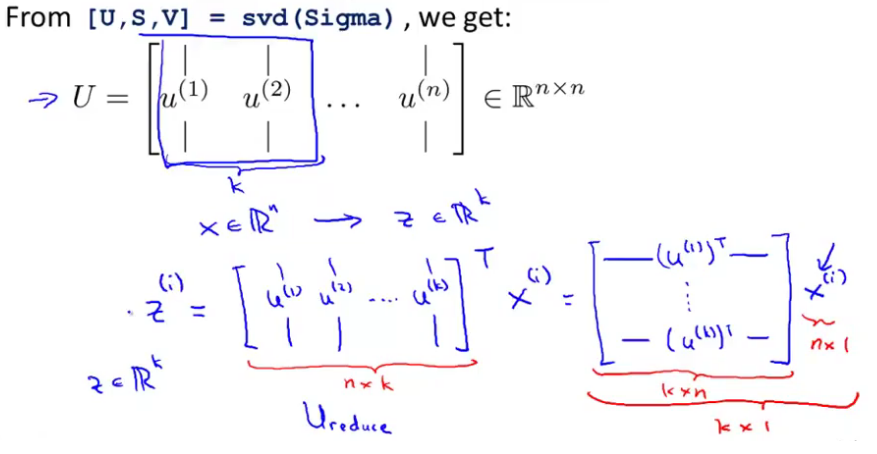 From [U,S,V] = svd(Sigma) , we get:
→ U = [ u^(1) u^(2) ... u^(n) ] ∈ ℝ^{n×n}
k
x ∈ ℝ^n → z ∈ ℝ^k
z^(i) = [ u^(1) u^(2) .... u^(k) ]^T x^(i) = [ —(u^(1))^T— ⋮ —(u^(k))^T— ] x^(i)
z ∈ ℝ^k
n×k
k×n
n×1
Ureduce
k×1